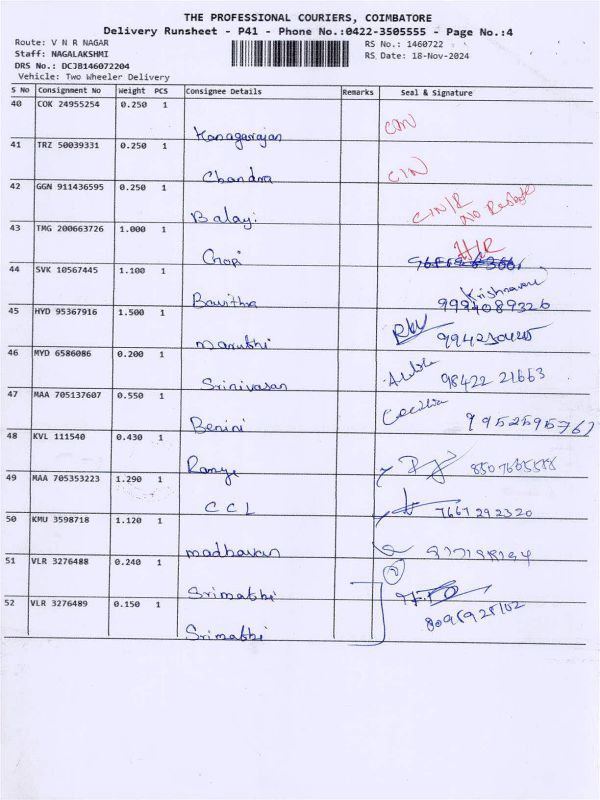 THE PROFESSIONAL COURIERS, COIMBATORE
Delivery Runsheet - P41 - Phone No.:0422-3505555 - Page No.:4
Route: V N R NAGAR RS No.: 1460722
Staff: NAGALAKSHMI RS Date: 18-Nov-2024
DRS No.: DCJB146072204
Vehicle: Two Wheeler Delivery
S No Consignment No Weight PCS Consignee Details Remarks Seal & Signature
40 COK 24955254 0.250 1
Kanagarajan
41 TRZ 50039331 0.250 1
Chandra CIN
42 GGN 911436595 0.250 1
Balaji CIN/R No
43 TMG 200663726 1.000 1
Gopi
44 SVK 10567445 1.100 1
Bavithra 9994089326
45 HYD 95367916 1.500 1
Maruthi
46 MYD 6586086 0.200 1
Srinivasan 98422 21663
47 MAA 705137607 0.550 1
Benini Cecilia
48 KVL 111540 0.430 1
Ramya
49 MAA 705353223 1.290 1
CCL 7667292320
50 KMU 3598718 1.120 1
madhavan
51 VLR 3276488 0.240 1
Srimathi 2
52 VLR 3276489 0.150 1
Srimathi